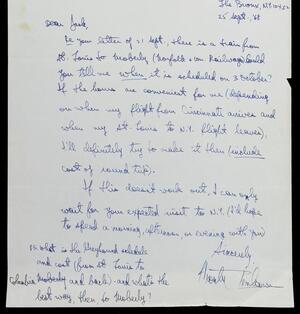 The Bronx, N.Y. 104
25 Sept. '68
Dear Jack,
Re your letter of Sept. there is a train from
St. Louis to Moberly (Norfolk & Wn Railway). Could
you tell me when it is scheduled on 3 October?
If the hours are convenient for me (depending
on when my flight from Cincinnati arrives and
when my St. Louis to N.Y. flight leaves),
I'll definitely try to make it then (include
cost of round trip).
If this doesn't work out, I can only
wait for your expected visit to N.Y. (I'd hope
to spend a morning, afternoon, or evening with you)
Sincerely,
P.S. What is the Greyhound schedule
and cost (from St. Louis to
Columbia Moberly and back) - and what's the
best way, then to Moberly?